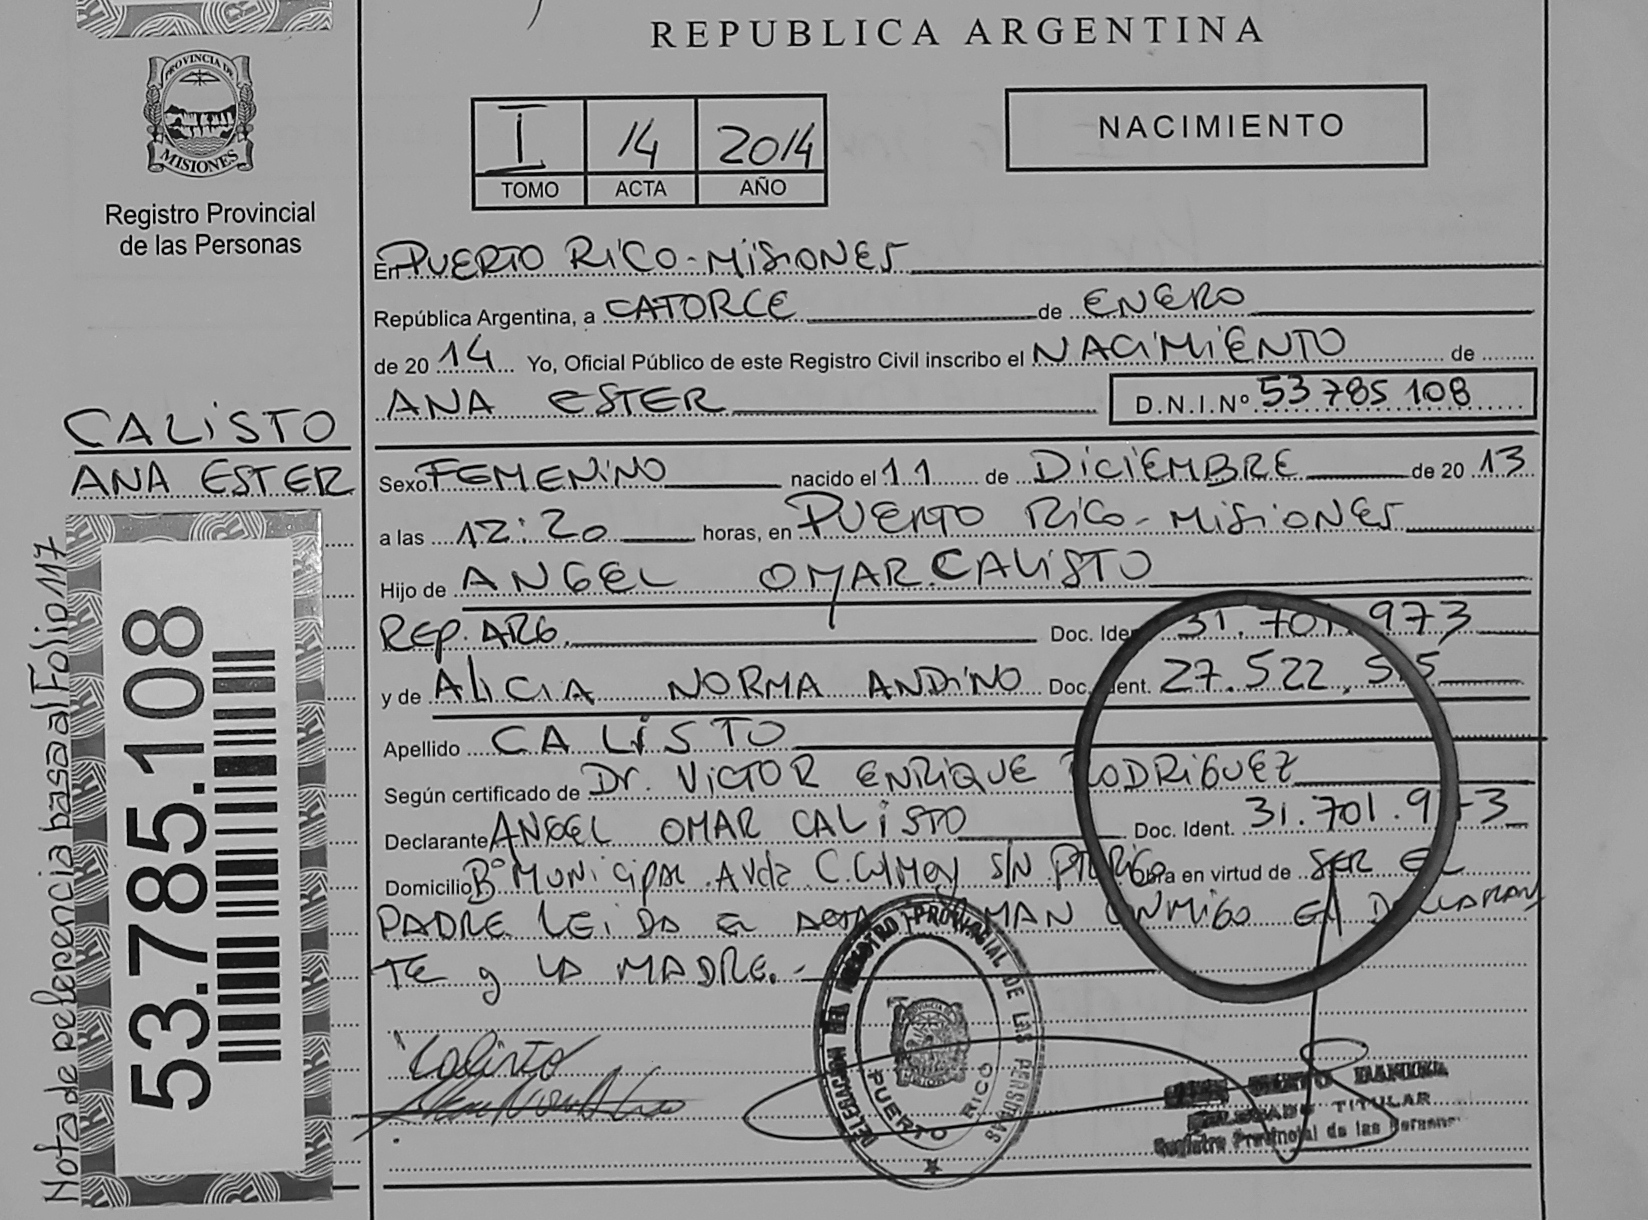 REPUBLICA ARGENTINA
PROVINCIA DE
MISIONES
Registro Provincial
de las Personas
I 14 2014
TOMO ACTA AÑO
NACIMIENTO
En PUERTO RICO - MISIONES
República Argentina, a CATORCE de ENERO
de 20 14 Yo, Oficial Público de este Registro Civil inscribo el NACIMIENTO de
ANA ESTER D.N.I.Nº 53 785 108
CALISTO
ANA ESTER
Sexo FEMENINO nacido el 11 de DICIEMBRE de 20 13
a las 12:20 horas, en PUERTO RICO - MISIONES
Hijo de ANGEL OMAR CALISTO
REP. ARG. Doc. Ide 31.701.973
y de ALICIA NORMA ANDINO Doc. Ident. 27.522.5 5
Apellido CALISTO
Según certificado de Dr. VICTOR ENRIQUE RODRIGUEZ
Declarante ANGEL OMAR CALISTO Doc. Ident. 31.701.973
Domicilio Bº MUNICIPAL Avda C. Culmey S/N PTO RICO Obra en virtud de SER EL
PADRE LEIDA EL ACTA FIRMAN CONMIGO EL DECLARAN
TE y LA MADRE. -
Calisto
53.785.108
Nota de referencia basa al Folio 117
DELEGACION REGISTRO PROVINCIAL DE LAS PERSONAS
PUERTO RICO
MISIONES
DELEGADO TITULAR
Registro Provincial de las Personas